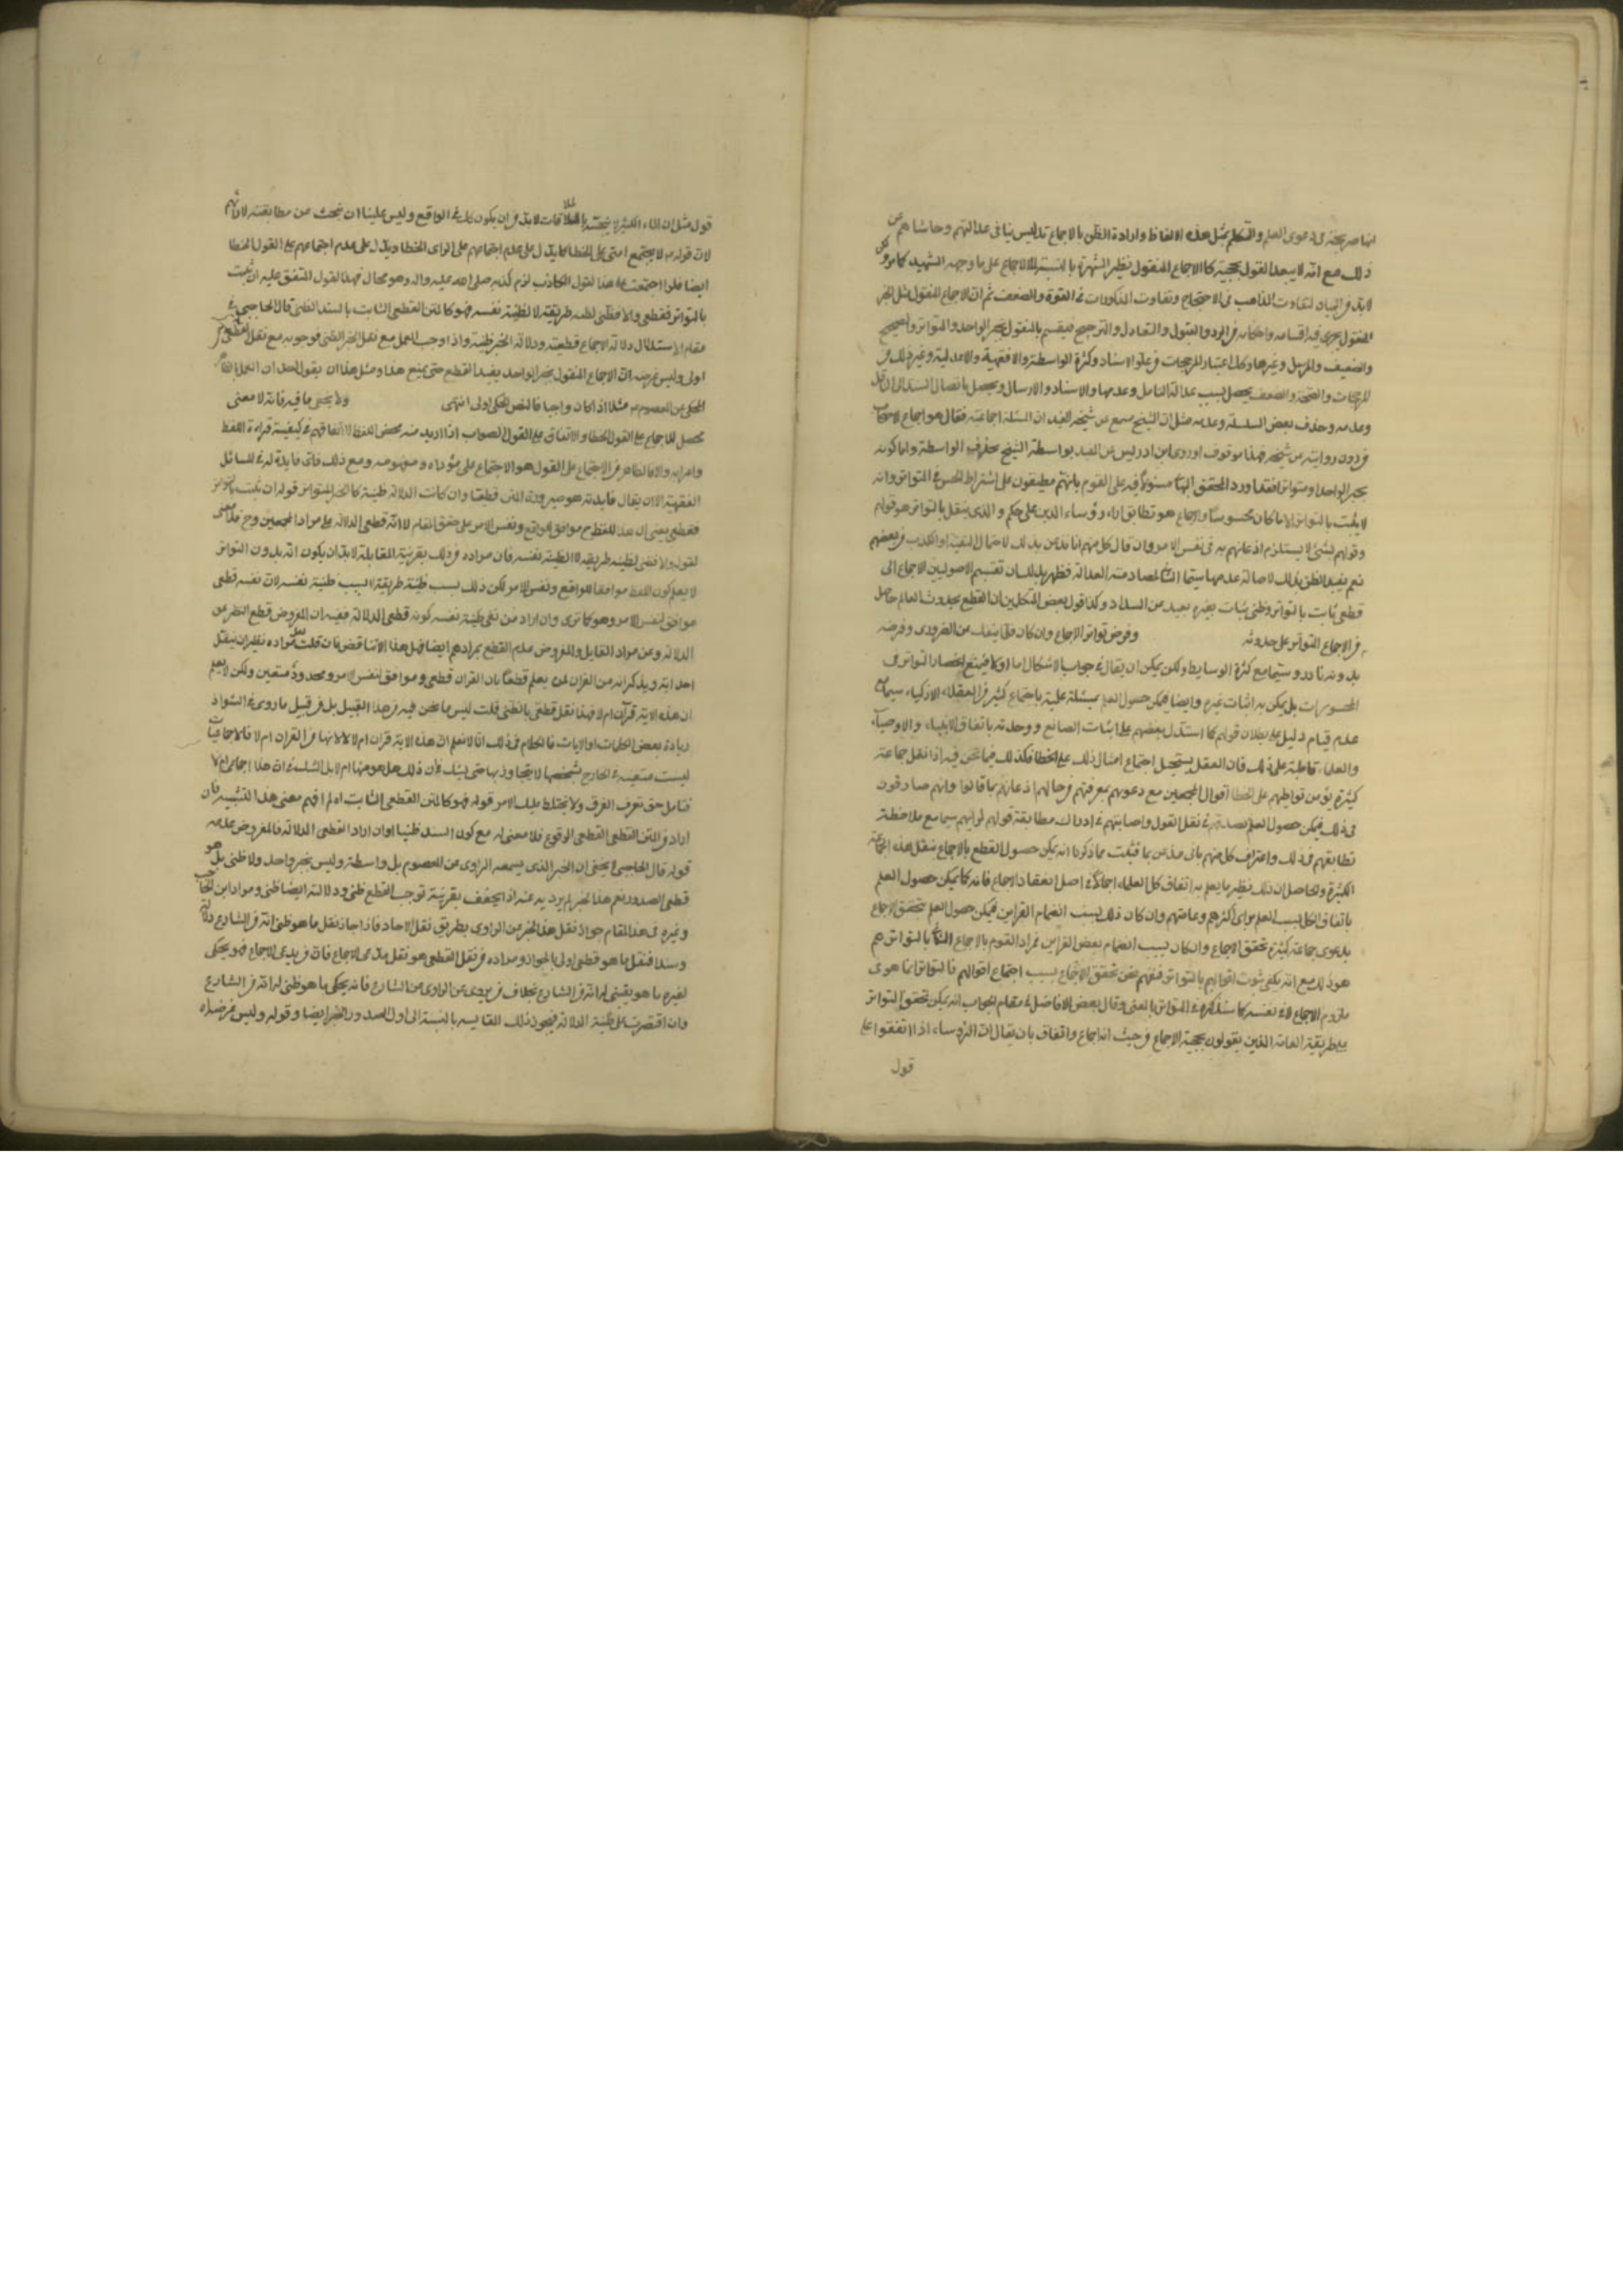 انها صريحة في دعوى العلم والتكلم بمثل هذه الالفاظ وارادة الظن بالاجماع تدليس ينافي عدالتهم وحاشاهم عن
ذلك مع انه لا يبعد القول بحجيته كالاجماع المنقول نظير الشهرة بالنسبة الى الاجماع على ما وجهه الشهيد كما مر
لابد في البيان لتفاوت المذاهب في الاحتجاج وتفاوت المذكورات في القوة والضعف ثم ان الاجماع المنقول مثل الخبر
المنقول يجري فيه اقسامه واحكامه من الرد والقبول والتعادل والترجيح فينقسم بالمنقول بخبر الواحد والمتواتر والصحيح
والضعيف والمرسل وغيرها وكذا اعتبار المرجحات من علو الاسناد وكثرة الواسطة والافقهية والاعدلية وغير ذلك من
المرجحات والصحة والضعف يحصل بسبب عدالة الناقل وعدمها والاسناد والارسال ويحصل باتصال السند الى الناقل
وعدمه وحذف بعض السلسلة وعدمه مثل ان الشيخ سمع من شيخه المفيد ان المسئلة اجماعية فقال هو اجماع لاصحاب
من دون روايته من شيخه فهذا موقوف او روى ابن ادريس عن المفيد بواسطة الشيخ بحذف الواسطة واما كونه
بخبر الواحد او متواتر فقد اورد المحقق البهائي سؤالا فيه على القوم بانهم مطبقون على اشتراط الحس في التواتر وانه
لا يثبت بالتواتر الا ما كان محسوسا والاجماع هو تطابق اراء رؤساء الدين على حكم والذي ينقل بالتواتر هو قولهم
وقولهم بشيء لا يستلزم اذعانهم به في نفس الامر وان قال كل منهم انا مذعن بذلك لاحتمال التقية او الكذب من بعضهم
نعم يفيد الظن بذلك لاصالة عدمها سيما الثاني لمصادمته العدالة فظهر بذلك ان تقسيم الاصوليين الاجماع الى
قطعي ثابت بالتواتر وظني ثبات بغيره بعيد من السداد وكذا قول بعض المتكلمين ان القطع بحدوث العالم حاصل
من الاجماع المتواتر على حدوثه وفرض تواتر الاجماع وان كان قلما ينفك عن الضروري وفرضه
بدونه نادر وسيما مع كثرة الوسايط ولكن يمكن ان يقال في جواب الاشكال اما اولا فيمنع انحصار التواتر في
المحسوسات بل يمكن به اثبات غيره وايضا فيمكن حصول العلم بمسئلة علمية باجتماع كثير من العقلاء الاذكياء سيما مع
عدم قيام دليل على بطلان قولهم كما استدل بعضهم على اثبات الصانع ووحدته باتفاق الانبياء والاوصياء
والعلماء قاطبة على ذلك فان العقل يستحيل اجتماع امثال ذلك على الخطا فكذلك فيما نحن فيه اذا نقل جماعة
كثيرة يؤمن تواطئهم على الخطا اقوال المجمعين مع دعويهم بمعرفتهم من حالهم اذعانهم بما قالوا وانهم صادقون
في ذلك فيمكن حصول العلم بصدقهم في نقل القول واصابتهم في ادراك مطابقة قولهم لرايهم سيما مع ملاحظة
تطابقهم في ذلك واعتراف كل منهم باني مذعن بما قلت مما ذكرنا انه يمكن حصول القطع بالاجماع بنقل هذه الجماعة
الكثيرة والحاصل ان ذلك نظير ما يعلم به اتفاق كل العلماء اجمالا في اصل انعقاد الاجماع فانه كما يمكن حصول العلم
باتفاق الكل بسبب العلم براى اكثرهم وعامتهم وان كان ذلك بسبب انضمام القراين فيمكن حصول العلم بتحقق الاجماع
بدعوى جماعة كثيرة تحقق الاجماع وان كان بسبب انضمام بعض القراين فمراد القوم بالاجماع الثابت بالتواتر هم
هو ذلك مع انه يكفي ثبوت اقوالهم بالتواتر فنفهم نحن تحقق الاجماع بسبب اجتماع اقوالهم فالتواتر انما هو في
ملزوم الاجماع لا في نفسه كما سنذكره في المتواتر بالمعنى وقال بعض الافاضل في مقام الجواب انه يمكن تحقق التواتر
على طريقة العامة الذين يقولون بحجية الاجماع من حيث انه اجماع واتفاق بان يقال ان الرؤساء اذا اتفقوا على
قول
قول مثل ان الماء الكثير لا ينجس بالملاقات لابد من ان يكون كل في الواقع وليس علينا ان نبحث عن مطابقته لارائهم
لان قوله لا يجتمع امتي على الخطا كما يدل على عدم اجتماعهم على الراى الخطا ويدل على عدم اجتماعهم على القول الخطا
ايضا فلو اجتمعت على هذا القول الكاذب لزم كذبه صلى الله عليه واله وهو محال فهذا القول المتفق عليه ان ثبت
بالتواتر فقطعي والا فظني لظنية طريقته لا لظنية نفسه فهو كالمتن القطعي الثابت بالسند الظني قال الحاجبي في
مقام الاستدلال دلالة الاجماع قطعية ودلالة الخبر ظنية واذا وجب العمل مع نقل الخبر الظني فوجوبه مع نقل القطعي
اولى وليس غرضه ان الاجماع المنقول بخبر الواحد يفيد القطع حتى يمنع هذا ومثل هذا ان يقول احد ان العمل بالظاهر
المحكي عن المعصوم مثلا اذا كان واجبا فالنص المحكي اولى انتهى ولا يخفى ما فيه فانه لا معنى
محصل للاجماع على القول الخطا والاتفاق على القول الصواب اذا اريد منه محض اللفظ الا اتفاقهم في كيفية قراءة اللفظ
واعرابه والا فالظاهر من الاجتماع على القول هو الاجتماع على مؤداه ومفهومه ومع ذلك فاى فايدة له في المسائل
الفقهية الا ان يقال فايدته هو صيرورة المتن قطعيا وان كانت الدلالة ظنية كالخبر المتواتر قوله ان ثبت بالتواتر
فقطعي يعني ان هذا اللفظ ح موافق الواقع ونفس الامر على حقق المقام لا انه قطعي الدلالة على مراد المجمعين وح فلا معنى
لقوله والا فظني لظنية طريقه لا لظنية نفسه فان مراده من ذلك بقرينة المقابلة لابد ان يكون انه بدون التواتر
لا يعلم كون اللفظ موافقا للواقع ونفس الامر لكن ذلك بسبب ظنية طريقه لا بسبب ظنية نفسه لان نفسه قطعي
موافق لنفس الامر وهو كما ترى وان اراد من نفي ظنية نفسه كونه قطعي الدلالة ففيه ان المفروض قطع النظر عن
الدلالة وعن مراد القايل والمفروض عدم القطع بمرادهم ايضا فهل هذا الا تناقض فان قلت لعل مراده نظير ان ينقل
احد اية ويذكر انه من القران لمن يعلم قطعا بان القران قطعي وموافق لنفس الامر ومحدود متعين ولكن لا يعلم
ان هذه الاية قرآن ام لا فهذا نقل قطعي بالظني قلت ليس ما نحن فيه من هذا القبيل بل من قبيل ما روى في الشواذ
زيادة بعض الكلمات او الايات فالكلام في ذلك انا لا نعلم ان هذه الاية قران ام لا لا انها من القران ام لا فالاجماعيات
ليست متعينة في الخارج بشخصها لا يتجاوز بها حتى يشك في ان ذلك هل هو منها ام لا بل الشك في ان هذا اجماعي ام لا
فتامل حق تعرف الفرق ولا يختلط عليك الامر قوله فهو كالمتن القطعي الثابت اه لم افهم معنى هذا التشبيه فان
اراد من المتن القطعي القطعي الوقوع فلا معنى له مع كون السند ظنيا وان اراد القطعي الدلالة فالمفروض عدمه
قوله قال الحاجبي لا يخفى ان الخبر الذي يسمعه الراوي من المعصوم بلا واسطة وليس بخبر واحد ولا ظني بل هو
قطعي الصدور نعم هذا الخبر لم يرد به عنه اذا لم يحفف بقرينة توجب القطع ظني ودلالته ايضا ظني ومراد ابن الحاجب
وغيره في هذا المقام جواز نقل هذا الخبر من الراوي بطريق نقل الاحاد فاذا جاز نقل ما هو ظني انه من الشارع دلالة
وسندا فنقل ما هو قطعي اولى بالجواز ومراده من نقل القطعي هو نقل مدعي الاجماع فان من يدعي الاجماع فهو يحكي
لغيره ما هو يقيني له انه من الشارع بخلاف من يروي عن الراوي عن الشارع فانه يحكي ما هو ظني له انه من الشارع
وان اقتصرت على ظنية الدلالة فيجوز ذلك المقايسة بالنسبة الى اول الصدور الخبر ايضا وقوله وليس غرضه اه